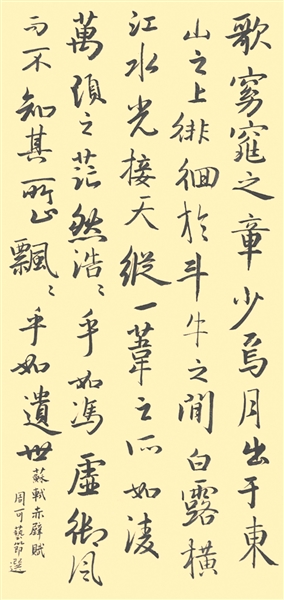 歌窈窕之章少焉月出于東
山之上徘徊於斗牛之間白露橫
江水光接天縱一葦之所如凌
萬頃之茫然浩々乎如馮虛御風
而不知其所止飄々乎如遺世
蘇軾赤壁賦
周可藝節選